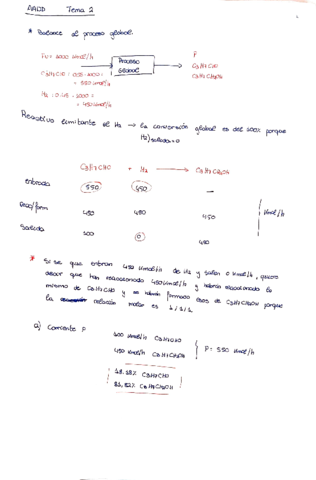 AADD Tema 2
* Balance al proceso global.
F0 = 1000 kmol/h
Proceso Global
P
C3H7CHO
C3H7CH2OH
C3H7CHO: 0,55 · 1000 =
= 550 kmol/h
H2: 0,45 · 1000 =
= 450 kmol/h
Reactivo limitante el H2 → la conversión global es del 100% porque
H2)salida = 0
C3H7CHO + H2 → C3H7CH2OH
Entrada 550 450 —
Reac/form 450 450 450
Salida 100 0 450
kmol/h
* Si se que entran 450 kmol/h de H2 y salen 0 kmol/h, quiere
decir que han reaccionado 450 kmol/h y habrán reaccionado lo
mismo de C3H7CHO y se habrán formado esos de C3H7CH2OH porque
la relación molar es 1/1/1
a) Corriente P
100 kmol/h C3H7CHO
450 kmol/h C3H7CH2OH
P = 550 kmol/h
18.18% C3H7CHO
81,82% C3H7CH2OH